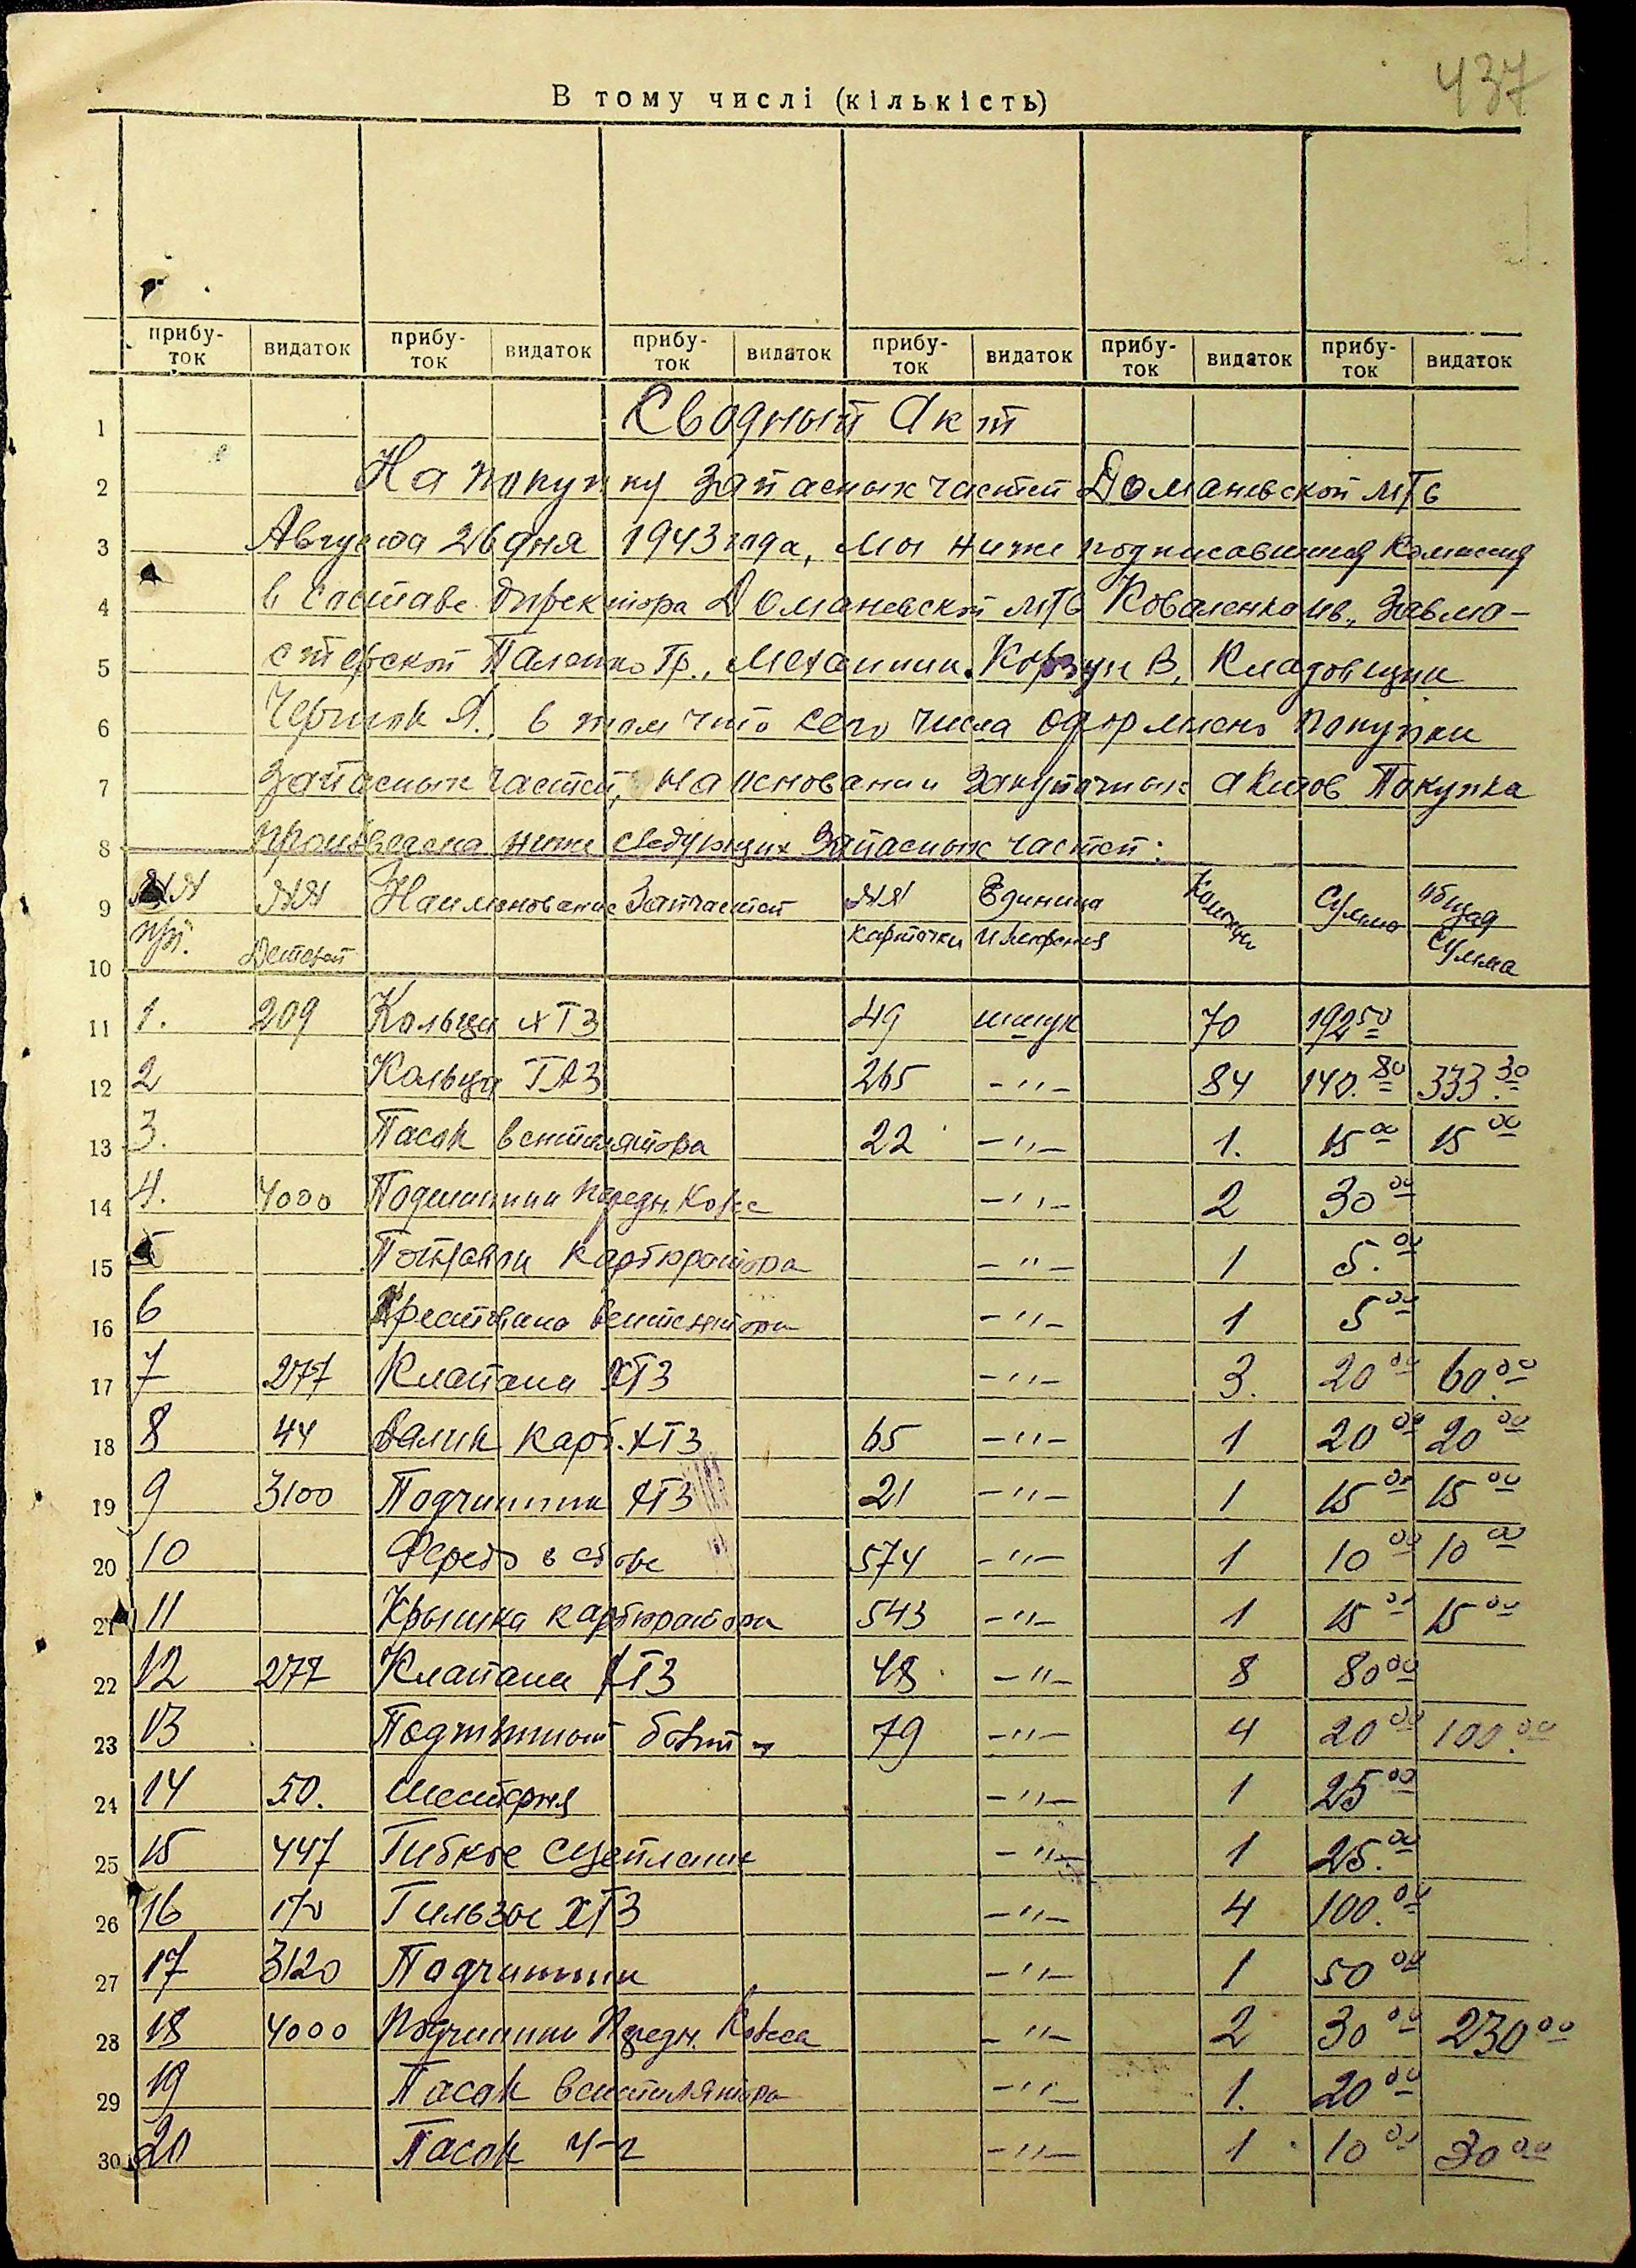 437
В тому числі (кількість)
прибуток видаток прибуток видаток прибуток видаток прибуток видаток прибуток видаток прибуток видаток
1 Сводный Акт
2 На покупку запасных частей Доманевской МТС
3 Августа 26 дня 1943 года, мы ниже подписавшиеся Комиссия
4 в составе директора Доманевской МТС Коваленко Ив., Завма-
5 стерской Паленко Гр., Механик Корзун В, Кладовщик
6 Я. в том что сего числа оформлено покупки
7 запасных частей, на основании закупочных актов Покупка
8 произведена ниже следующих запасных частей:
9 №№ №№ Наименование Запчастей №№ Единица Сумма общая
10 пп. Деталей карточки измерения Сумма
11 1. 209 Кольца ХТЗ 49 штук 70 192 50
12 2 Кольца ГАЗ 265 -"- 84 140. 80 333. 30
13 3. Пасок вентилятора 22 -"- 1. 15 00 15 00
14 4. 7000 Подшипник Передн. Колес -"- 2 30 00
15 5 Поплавок карбюратора -"- 1 5. 00
16 6 Крестовина вентилятора -"- 1 5 00
17 7 277 Клапана ХТЗ -"- 3. 20 00 60. 00
18 8 44 Валик карб. ХТЗ 65 -"- 1 20 00 20 00
19 9 3100 Подчипник ХТЗ 21 -"- 1 15 00 15 00
20 10 574 -"- 1 10 00 10 00
21 11 Крышка карбюратора 543 -"- 1 15 00 15 00
22 12 277 Клапана ХТЗ 48 -"- 8 80 00
23 13 болт 79 -"- 4 20 00 100. 00
24 14 50. Шестерня -"- 1 25 00
25 15 447 Гибкое сцепление -"- 1 25. 00
26 16 170 Гильзы ХТЗ -"- 4 100. 00
27 17 3120 Подчипник -"- 1 50 00
28 18 7000 Подчипник Передн. Колеса -"- 2 30 00 230 00
29 19 Пасок вентилятора -"- 1. 20 00
30 20 Пасок -"- 1 10 00 30 00